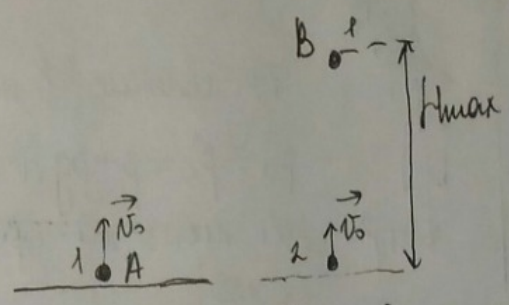 B 1
Hmax
v₀
1 A
2 v₀